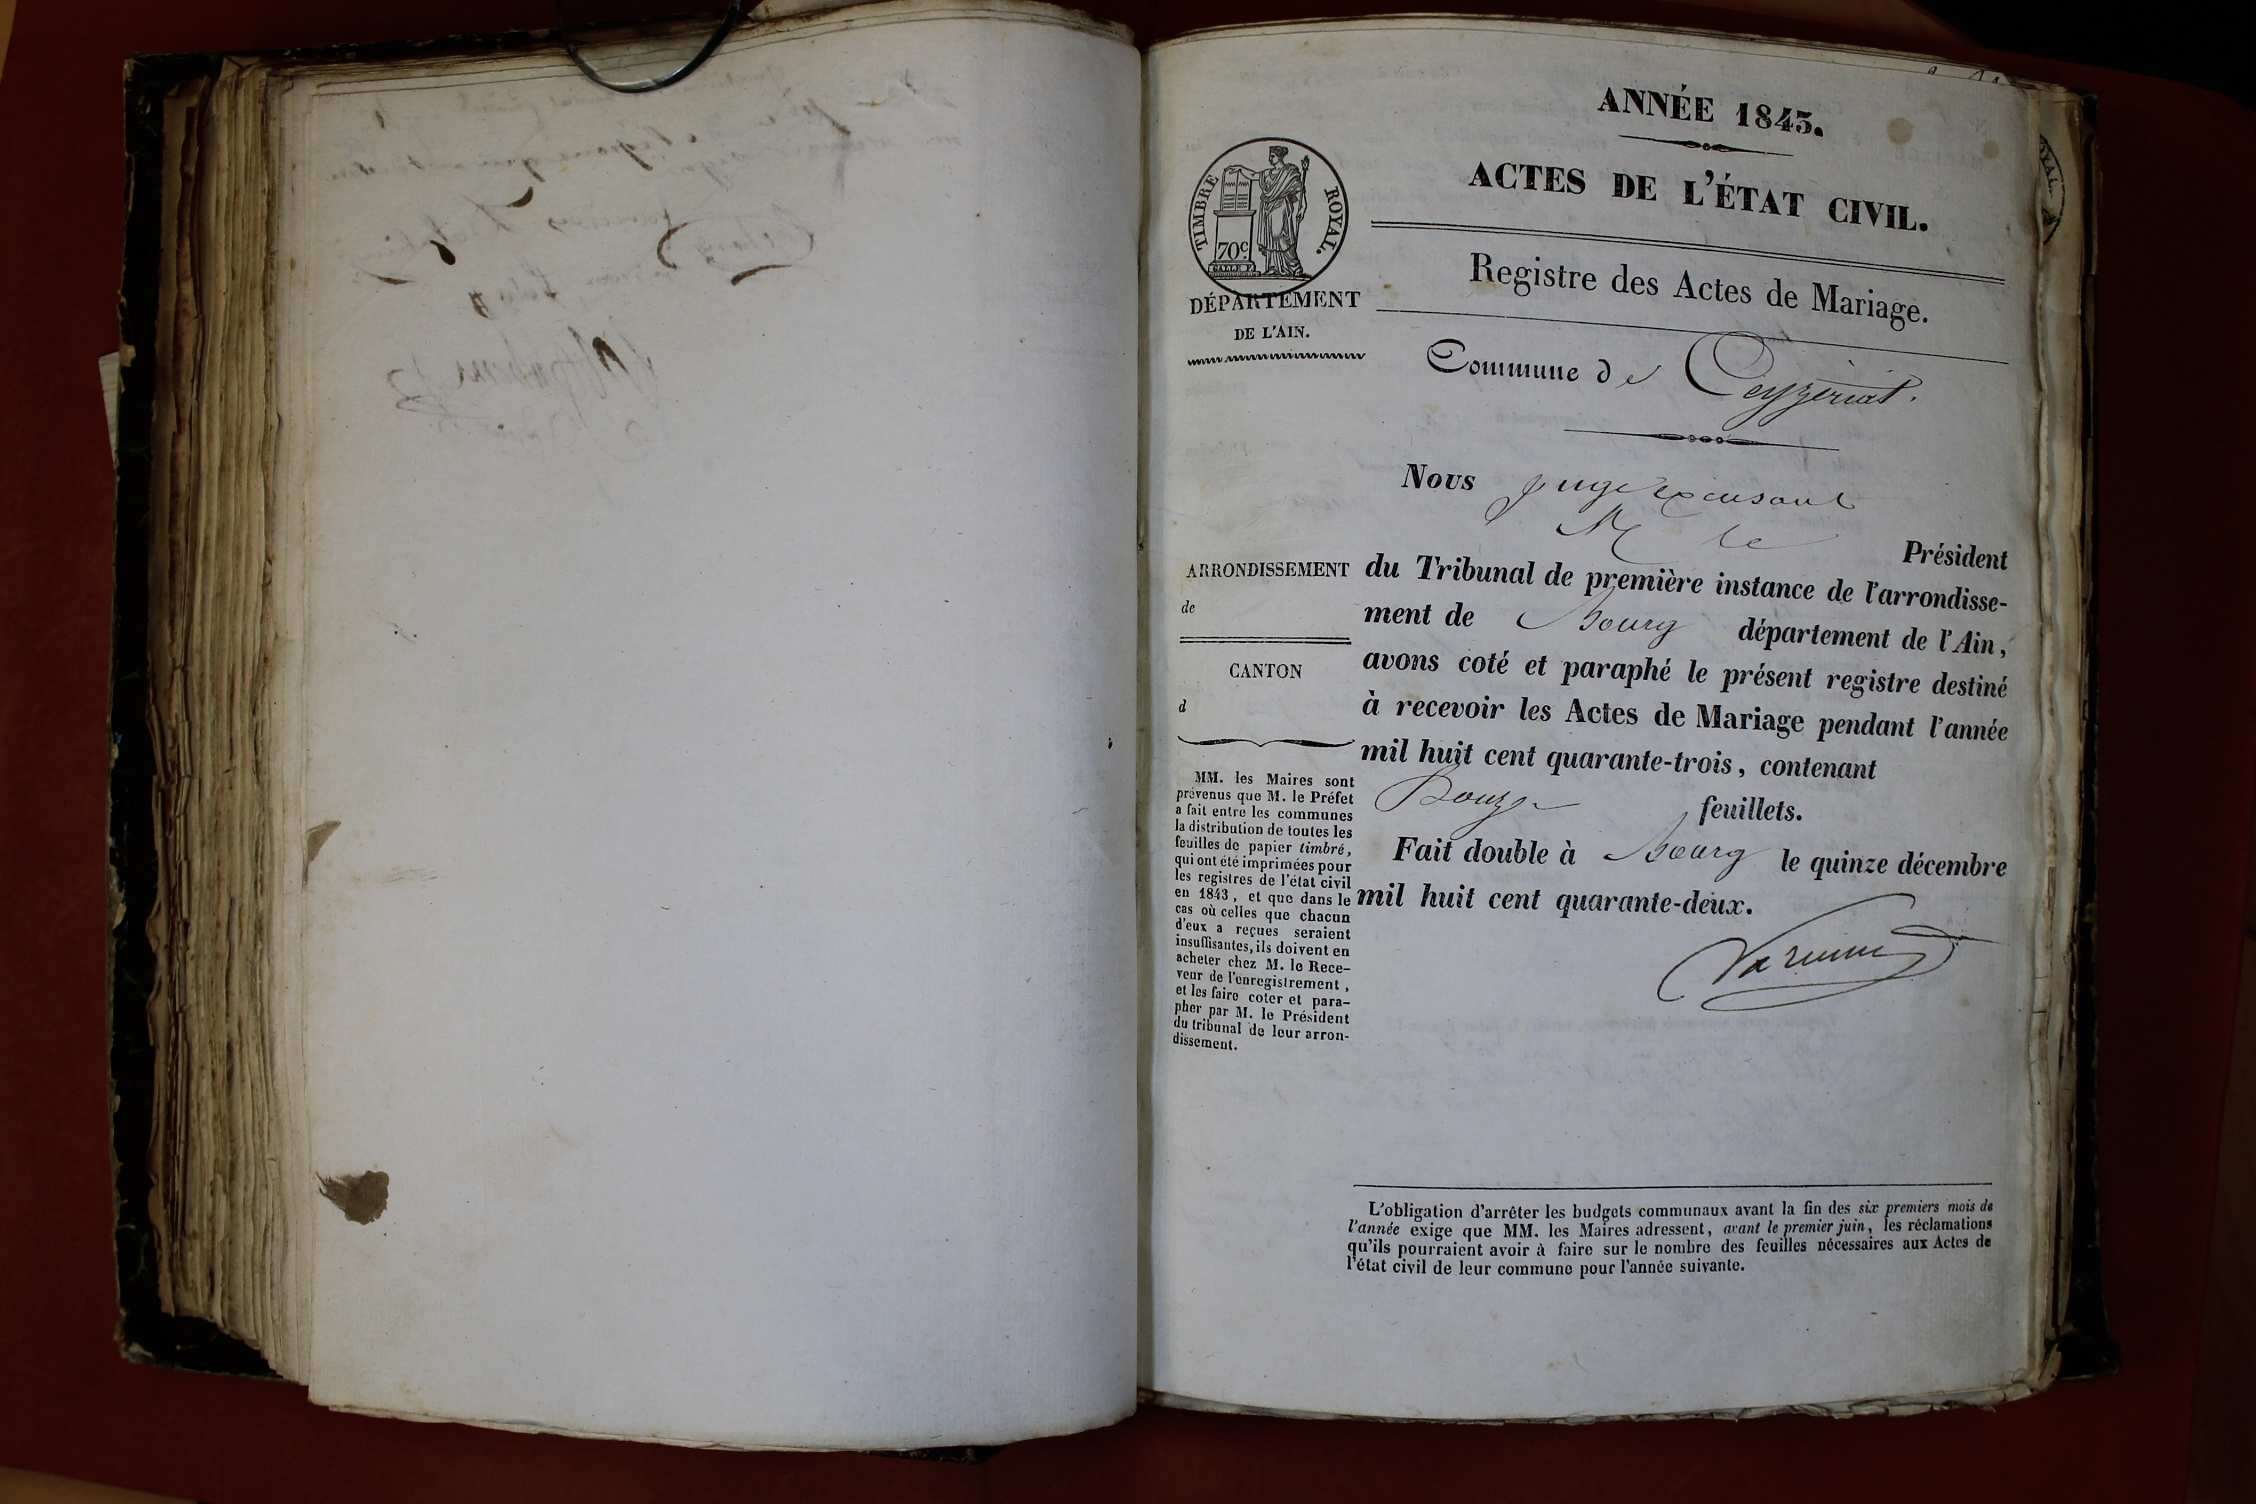 ANNÉE 1843.
ACTES DE L'ÉTAT CIVIL.
TIMBRE ROYAL.
70 c.
DÉPARTEMENT
DE L'AIN.
Registre des Actes de Mariage.
Commune de Ceyzeriat.
Nous juge excusant
M le
Président
du Tribunal de première instance de l'arrondisse-
ment de Bourg département de l'Ain,
avons coté et paraphé le présent registre destiné
à recevoir les Actes de Mariage pendant l'année
mil huit cent quarante-trois, contenant
feuillets.
Fait double à Bourg le quinze décembre
mil huit cent quarante-deux.
ARRONDISSEMENT
de
CANTON
d
MM. les Maires sont
prévenus que M. le Préfet
a fait entre les communes
la distribution de toutes les
feuilles de papier timbré,
qui ont été imprimées pour
les registres de l'état civil
en 1843, et que dans le
cas où celles que chacun
d'eux a reçues seraient
insuffisantes, ils doivent en
acheter chez M. le Rece-
veur de l'enregistrement,
et les faire coter et para-
pher par M. le Président
du tribunal de leur arron-
dissement.
L'obligation d'arrêter les budgets communaux avant la fin des six premiers mois de
l'année exige que MM. les Maires adressent, avant le premier juin, les réclamations
qu'ils pourraient avoir à faire sur le nombre des feuilles nécessaires aux Actes de
l'état civil de leur commune pour l'année suivante.